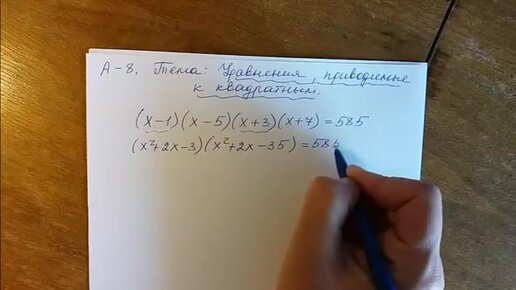 А-8. Тема: Уравнения, приводимые
к квадратным.
(x-1)(x-5)(x+3)(x+7)=585
(x²+2x-3)(x²+2x-35)=585